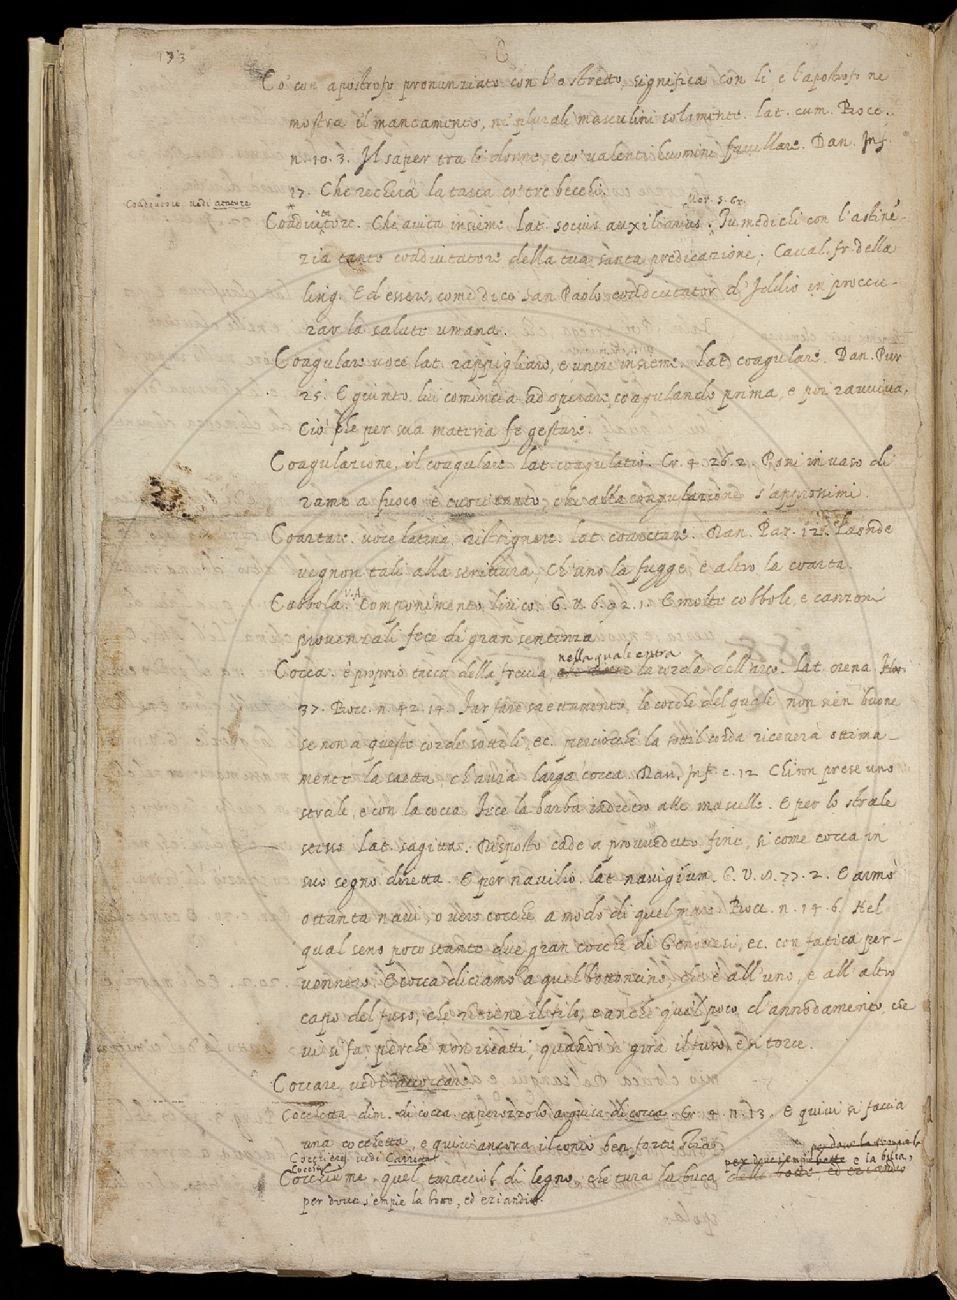 173
C
Co' con apostrofo pronunziato con l'o stretto, significa con li e l'apostrofo ne
mostra il mancamento, ne' plurali masculini solamente. lat. cum. Bocc.
n. 10. 3. Il saper tra le donne, e co' valenti huomini favellare. Dan. Inf.
17. Che recherà la tasca co' tre becchi.
Coadiutore. Che aiuta insieme. lat. socius auxiliarius. Mor. S. Gr.
Coadiutore vedi
con l'astinẽ-
zia tanto coadiutatore della tua santa predicazione; Caval. fr. della
ling. Ed essere, come dico San Paolo coadiutator d'Iddio in proccu-
rar la salute umana.
Coagulare voce lat. rappigliare, e unire insieme. Lat. coagulare. Dan. Pur
25. E giunto lui comincia ad operare, coagulando prima, e poi ravviva,
Ciò che per sua materia fe gestare.
Coagulazione, il coagulare lat. coagulatio. Cr. 4. 26. 2. Poni in vaso di
rame a fuoco e cuoci tanto, che alla coagulazione s'appressimi.
Coartare. voce latina, ristrignere. lat. coarctare. Dan. Par. 12. Laonde
vegnon tali alla scrittura, Ch'uno la fugge e altro la coarta.
Cobbola. V.A. Componimento lirico. G. V. 6. 92. 1. E molte cobbole, e canzoni
provenzali fece di gran sentenza
Cocca. è proprio tacca della freccia, nella quale entra la corda dell'arco. Lat. crena
37. Bocc. n. 42. 14. saettamento, le cocche del quale non sien buone
se non a queste corde sottili, ec. perciocchè la sottil corda riceverà ottima-
mente la saetta, ch'avrà larga cocca. Dan. Inf. c. 12 Chiron prese uno
strale, e con la cocca Fece la barba indietro alle mascelle. E per lo strale
stesso lat. sagitta. Disposto cade a provveduto fine, si come cocca in
suo segno diretta. E per navilio. lat. navigium. G. V. 77. 2. E armò
ottanta navi, o vero cocche a modo di quel mare Bocc. n. 14. 6. Nel
qual seno poco stante due gran cocche di Genovesi, ec. con fatica per-
vennero. E cocca diciamo a quel bottoncino, che è all'uno, e all'altro
capo del fuso, che ritiene il filo, e anche quel poco d'annodamento, che
vi si fa perchè non iscatti, quando si gira il fuso, e si torce.
Coccare, vedi accoccare.
Cocchetta dim. di cocca caperozzolo a guisa di cocca. Cr. 4. n. 13. E quivi si faccia
una cocchetta, e quivi ancora il conio ben forte
vedi Carrozza
Cocchiume. quel turacciol di legno, che tura la buca
per donde s'empie la botte, ed eziandio